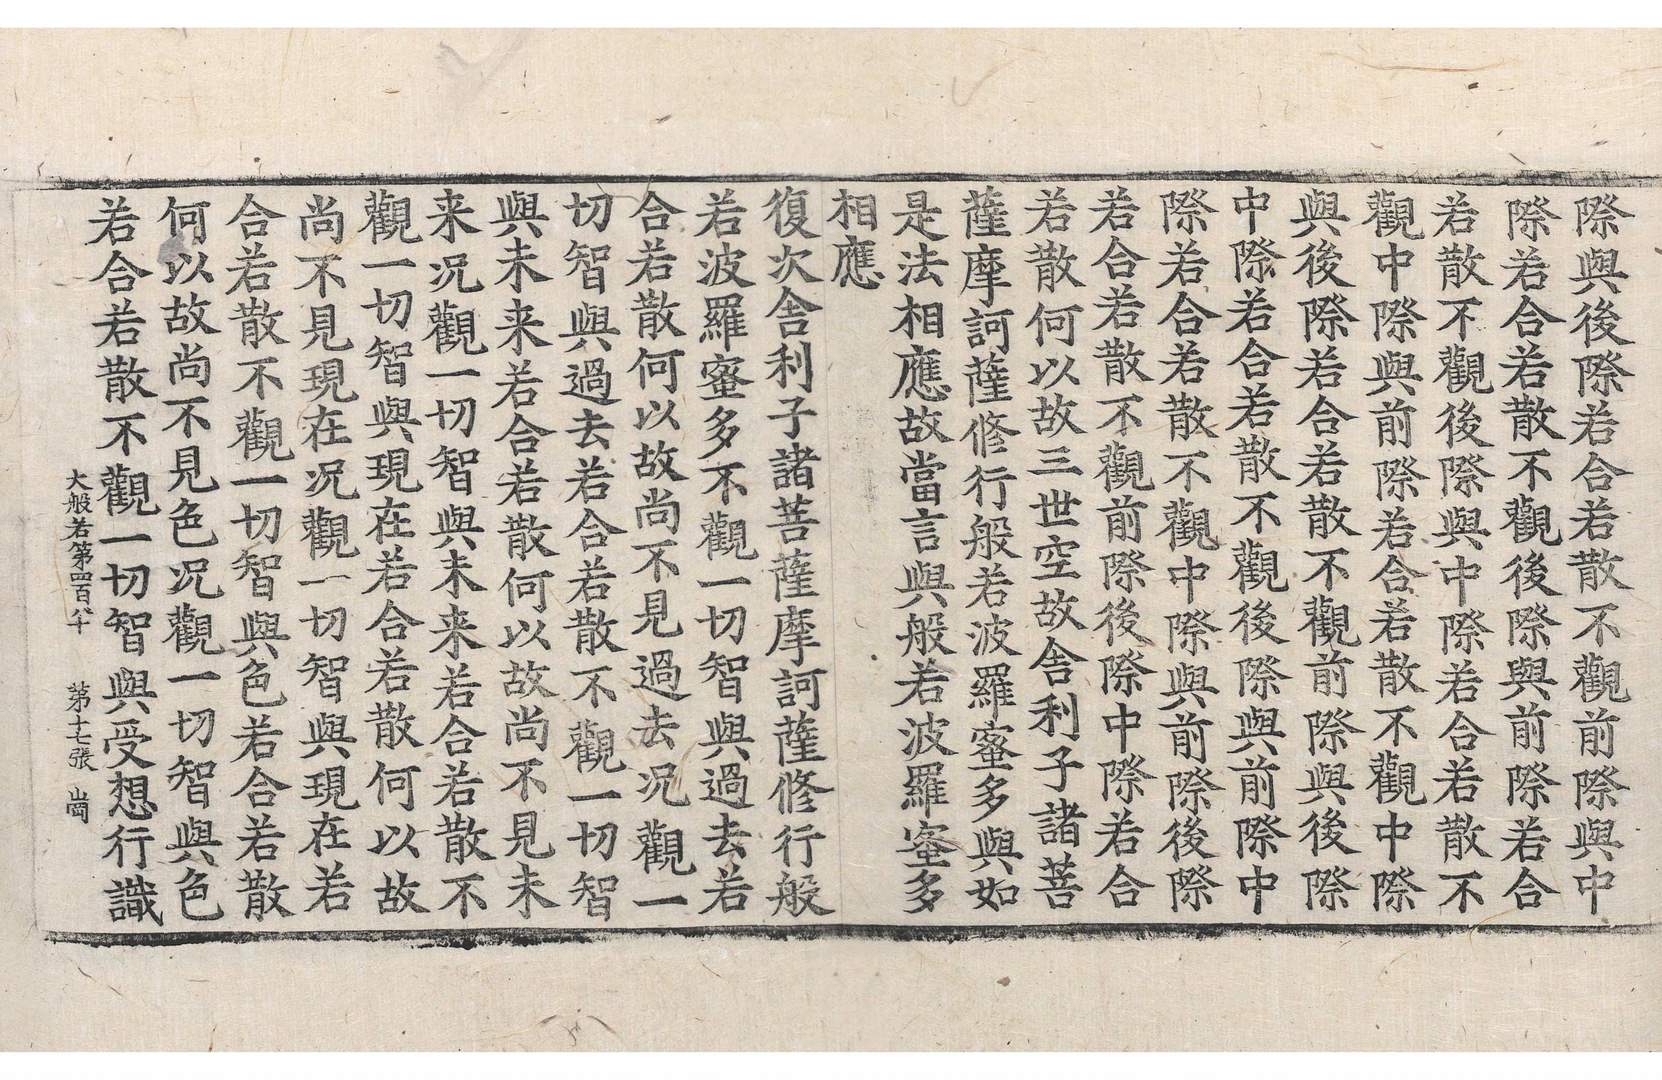 際與後際若合若散不觀前際與中
際若合若散不觀後際與前際若合
若散不觀後際與中際若合若散不
觀中際與前際若合若散不觀中際
與後際若合若散不觀前際與後際
中際若合若散不觀後際與前際中
際若合若散不觀中際與前際後際
若合若散不觀前際後際中際若合
若散何以故三世空故舍利子諸菩
薩摩訶薩修行般若波羅蜜多與如
是法相應故當言與般若波羅蜜多
相應
復次舍利子諸菩薩摩訶薩修行般
若波羅蜜多不觀一切智與過去若
合若散何以故尚不見過去况觀一
切智與過去若合若散不觀一切智
與未来若合若散何以故尚不見未
来况觀一切智與未来若合若散不
觀一切智與現在若合若散何以故
尚不見現在况觀一切智與現在若
合若散不觀一切智與色若合若散
何以故尚不見色况觀一切智與色
若合若散不觀一切智與受想行識
大般若第四百八十 第十七張 崗